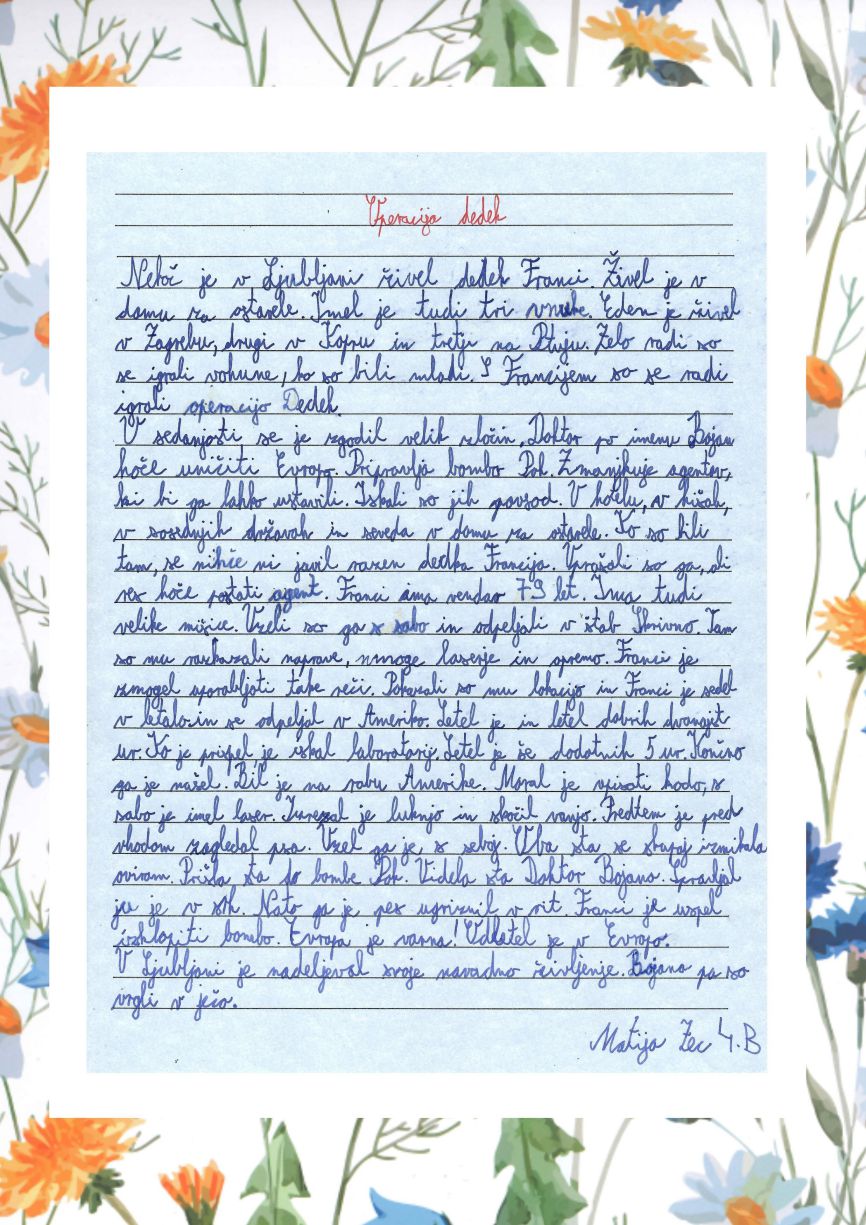 Operacija dedek
Nekoč je v Ljubljani živel dedek Franci. Živel je v
domu za ostarele. Imel je tudi tri vnuke. Eden je živel
v Zagrebu, drugi v Kopru in tretji na Ptuju. Zelo radi so
se igrali vohune, ko so bili mladi. S Francijem so se radi
igrali operacijo Dedek.
V sedanjosti se je zgodil velik zločin. Doktor po imenu Bojan
hoče uničiti Evropo. Pripravlja bombo Pok. Zmanjkuje agentov,
ki bi ga lahko ustavili. Iskali so jih povsod. V hotelu, v hišah,
v sosednjih državah in seveda v domu za ostarele. Ko so bili
tam, se nihče ni javil razen dedka Francija. Vprašali so ga, ali
res hoče postati agent. Franci ima vendar 79 let. Ima tudi
velike mišice. Vzeli so ga s sabo in odpeljali v štab Skrivno. Tam
so mu razkazali naprave, mnoge laserje in opremo. Franci je
zmogel uporabljati take reči. Pokazali so mu lokacijo in Franci je sedel
v letalo in se odpeljal v Ameriko. Letel je in letel dobrih dvanajst
ur. Ko je prispel je iskal laboratorij. Letel je še dodatnih 5 ur. Končno
ga je našel. Bil je na robu Amerike. Moral je vpisati kodo, s
sabo je imel laser. Izrezal je luknjo in skočil vanjo. Predtem je pred
vhodom zagledal psa. Vzel ga je s seboj. Oba sta se skupaj izmikala
oviram. Prišla sta do bombe Pok. Videla sta Doktor Bojana. Spravljal
ju je v srh. Nato ga je pes ugriznil v rit. Franci je uspel
izklopiti bombo. Evropa je varna! Odletel je v Evropo.
V Ljubljani je nadeljeval svoje navadno življenje. Bojana pa so
vrgli v ječo.
Matija Zec 4.B